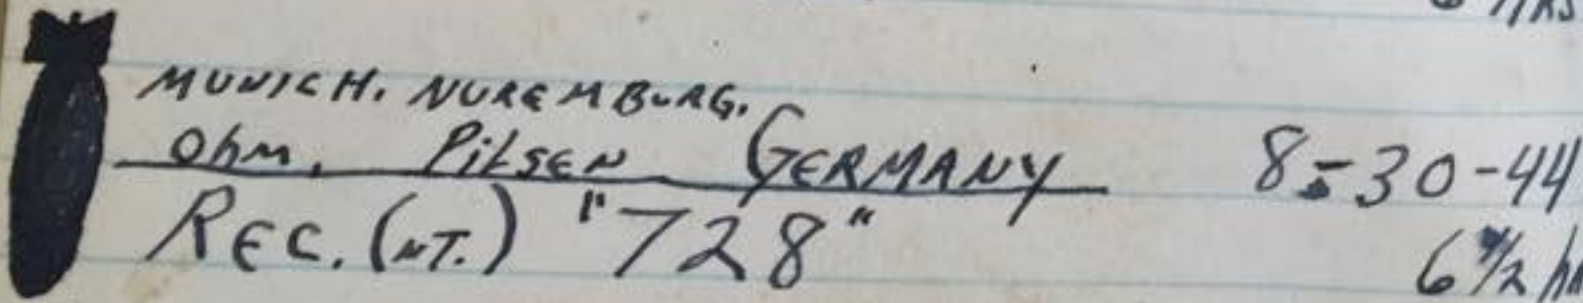 MUNICH. NUREMBURG.
Ohm. Pilsen GERMANY 8-30-44
REC. (NT.) "728" 6 1/2